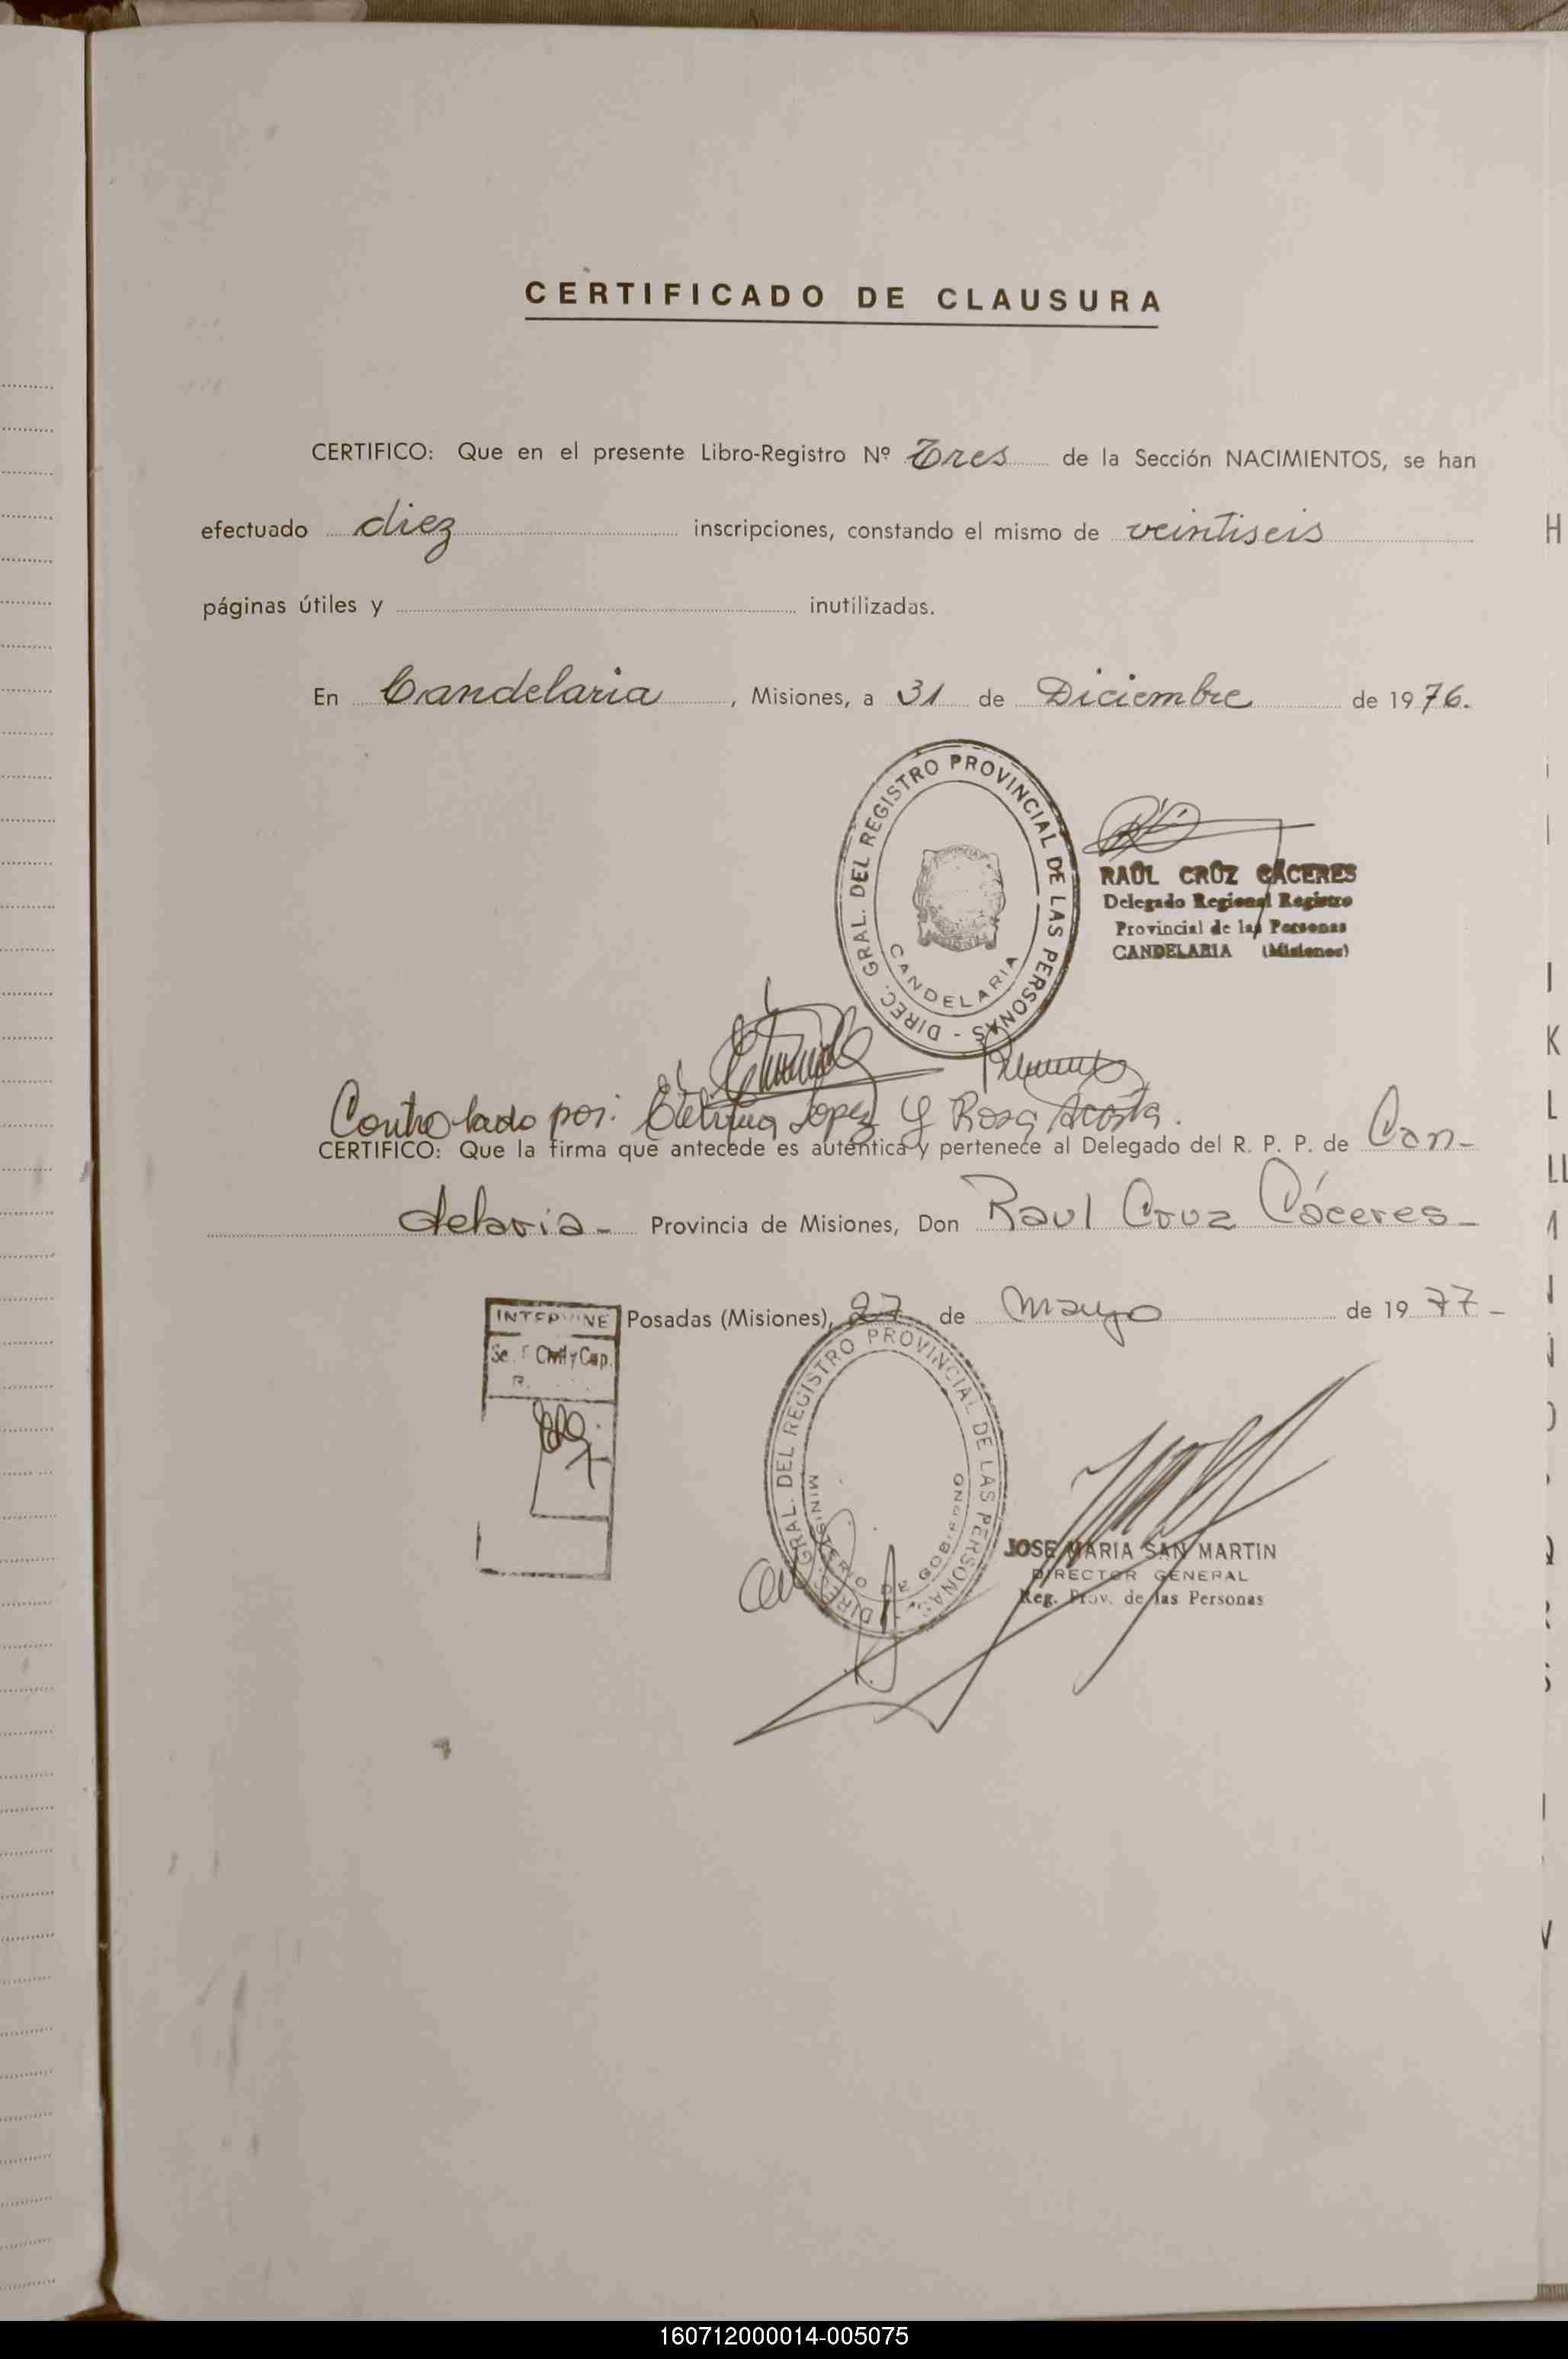 CERTIFICADO DE CLAUSURA
CERTIFICO: Que en el presente Libro-Registro Nº Tres de la Sección NACIMIENTOS, se han
efectuado diez inscripciones, constando el mismo de veintiseis
páginas útiles y inutilizadas.
En Candelaria, Misiones, a 31 de Diciembre de 1976.
DIREC. GRAL. DEL REGISTRO PROVINCIAL DE LAS PERSONAS -
CANDELARIA
RAÚL CRUZ CÁCERES
Delegado Regional Registro
Provincial de las Personas
CANDELARIA (Misiones)
Controlado por: Etelvina Lopez y Rosa Acosta.
CERTIFICO: Que la firma que antecede es auténtica y pertenece al Delegado del R. P. P. de Can-
delaria - Provincia de Misiones, Don Raul Cruz Cáceres -
Posadas (Misiones), 27 de Mayo de 1977 -
INTERVINE
Civil y Cap.
DIREC. GRAL. DEL REGISTRO PROVINCIAL DE LAS PERSONAS
MINISTERIO DE GOBIERNO
JOSE MARIA SAN MARTIN
DIRECTOR GENERAL
Reg. Prov. de las Personas
H
K
L
LL
Q
R
S
V
160712000014-005075